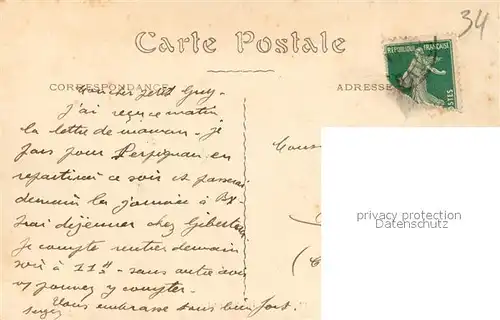 34
Carte Postale
REPUBLIQUE FRANÇAISE
POSTES
CORRESPONDANCE
ADRESSE
Mon cher petit Guy.
J'ai reçu ce matin
la lettre de maman. je
pars pour Perpignan en
repartirai ce soir et passerai
demain la journée à
irai déjeuner chez
Je compte rentrer demain
soir à 11h. sans autre avis
vs pouvez y compter.
Vous embrasse tous bien fort.
privacy protection
Datenschutz